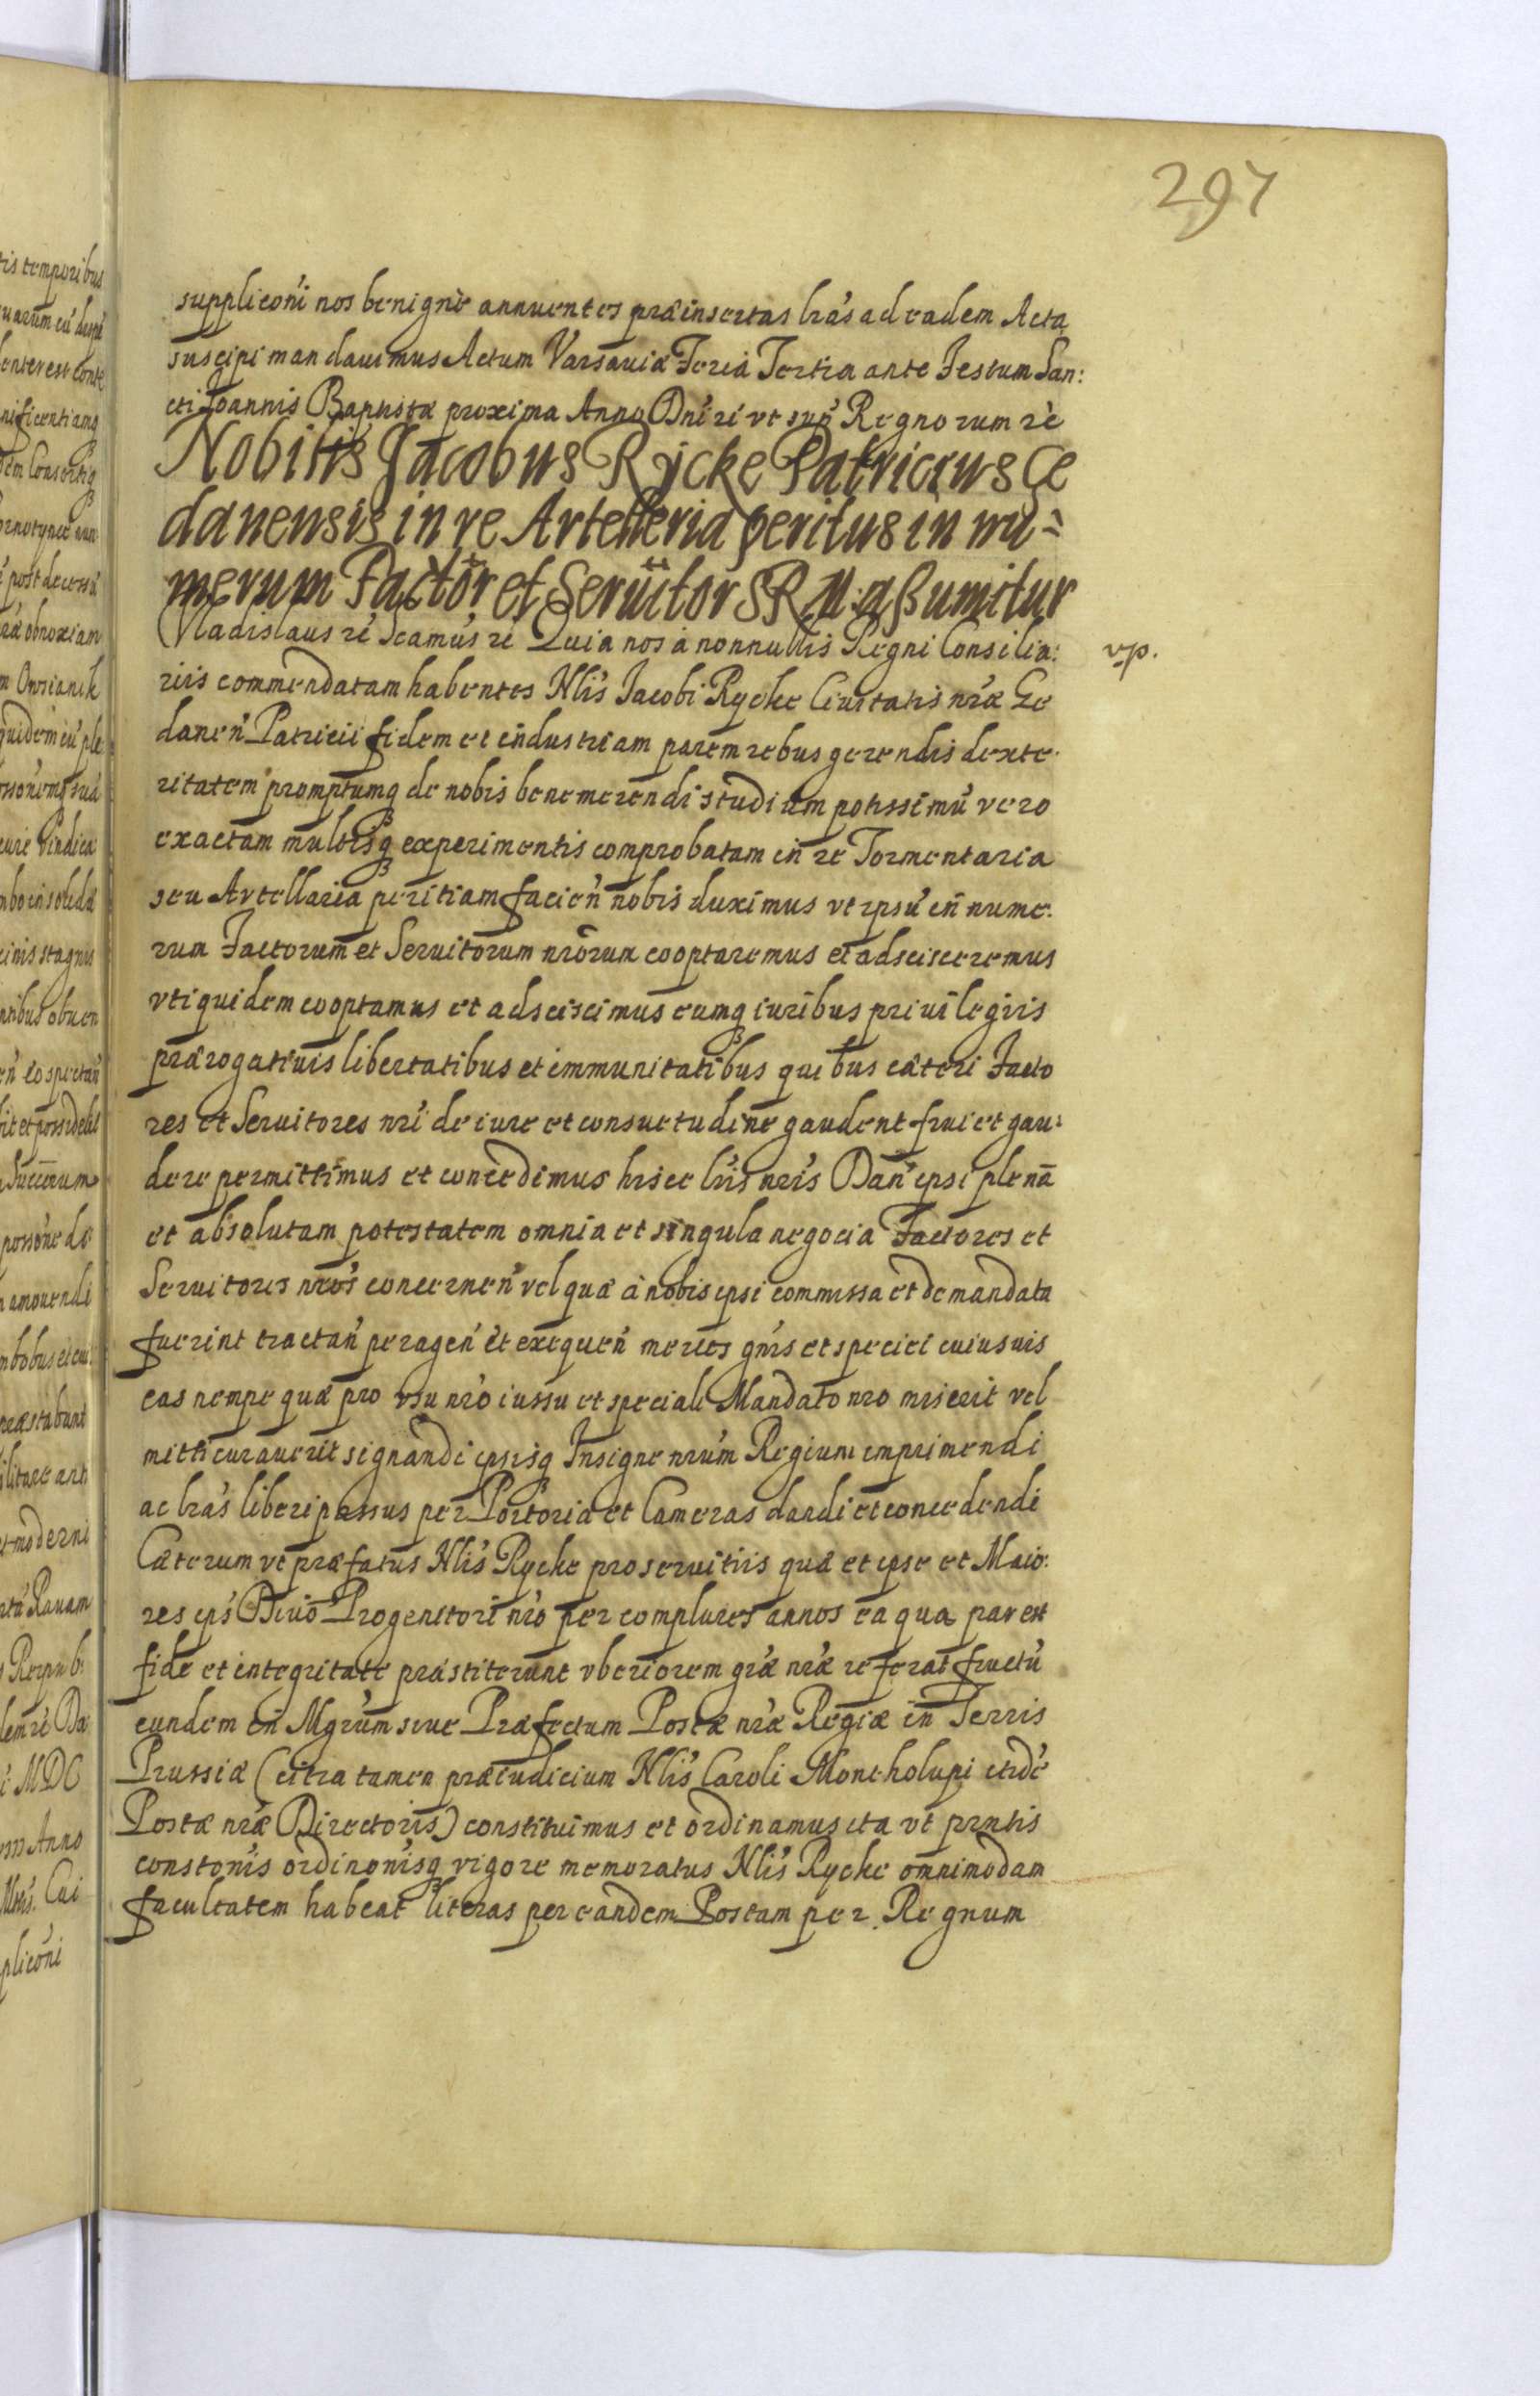 297
suppliconi nos benigne annuentes præinsertas lras ad eadem Acta
suscipi mandauimus Actum Varsauiæ Feria Tertia ante Festum San:
cti Joannis Baptistæ proxima Anno Dni zć vt sup Regnorum zć
Nobilis Jacobus Rÿcke Patricius Ge
danensis in re Artelleria peritus in nu=
merum Factor et Seruitor S R M aßumitur
Vladislaus zć Scamus zć Quia nos à nonnullis Regni Consilia:
vp.
riis commendatam habentes Nlis Jacobi Rycke Ciuitatis nræ Ge
danen Patricii fidem et industriam parem rebus gerendis dexte:
ritatem promptumq de nobis benemerendi studium potissimu vero
exactam multisq experimentis comprobatam in re Tormentaria
seu Artellaria peritiam facien nobis duximus vt ipsu in nume:
rum Factorum et Seruitorum nrorum cooptaremus et adscisceremus
vti quidem cooptamus et adscicimus eumq iuribus priuilegiis
prærogatiuis libertatibus et immunitatibus quibus cæteri Facto
res et Seruitores nri de iure et consuetudine gaudent frui et gau:
dere permittimus et concedimus hisce lris nris Dan ipsi plenā
et absolutam potestatem omnia et singula negocia Factores et
Seruitores nros concernen vel quæ à nobis ipsi commissa et demandata
fuerint tractan peragen et exequen merces gnis et speciei cuiusuis
eas nempe quæ pro vsu nro iussu et speciali Mandato nro miserit vel
mitti curauerit signandi ipsisq Insigne nrum Regium imprimendi
ac lras liberi passus per Portoria et Cameras dandi et concedendi
Cæterum vt præfatus Nlis Rycke pro seruitiis quæ et ipse et Maio:
res eps Diuo Progenitori nro per complures annos ea qua par est
fide et integritate præstiterunt vberiorem græ nræ referat fructu
eundem in Mgrum siue Præfectum Postæ nræ Regiæ in Terris
Prussiæ (citra tamen præiudicium Nlis Caroli Monteholupi itide
Postæ nræ Directoris) constituimus et ordinamus ita vt prntis
constonis ordinonisq vigore memoratus Nlis Rycke omnimodam
facultatem habeat literas per eandem Postam per Regnum